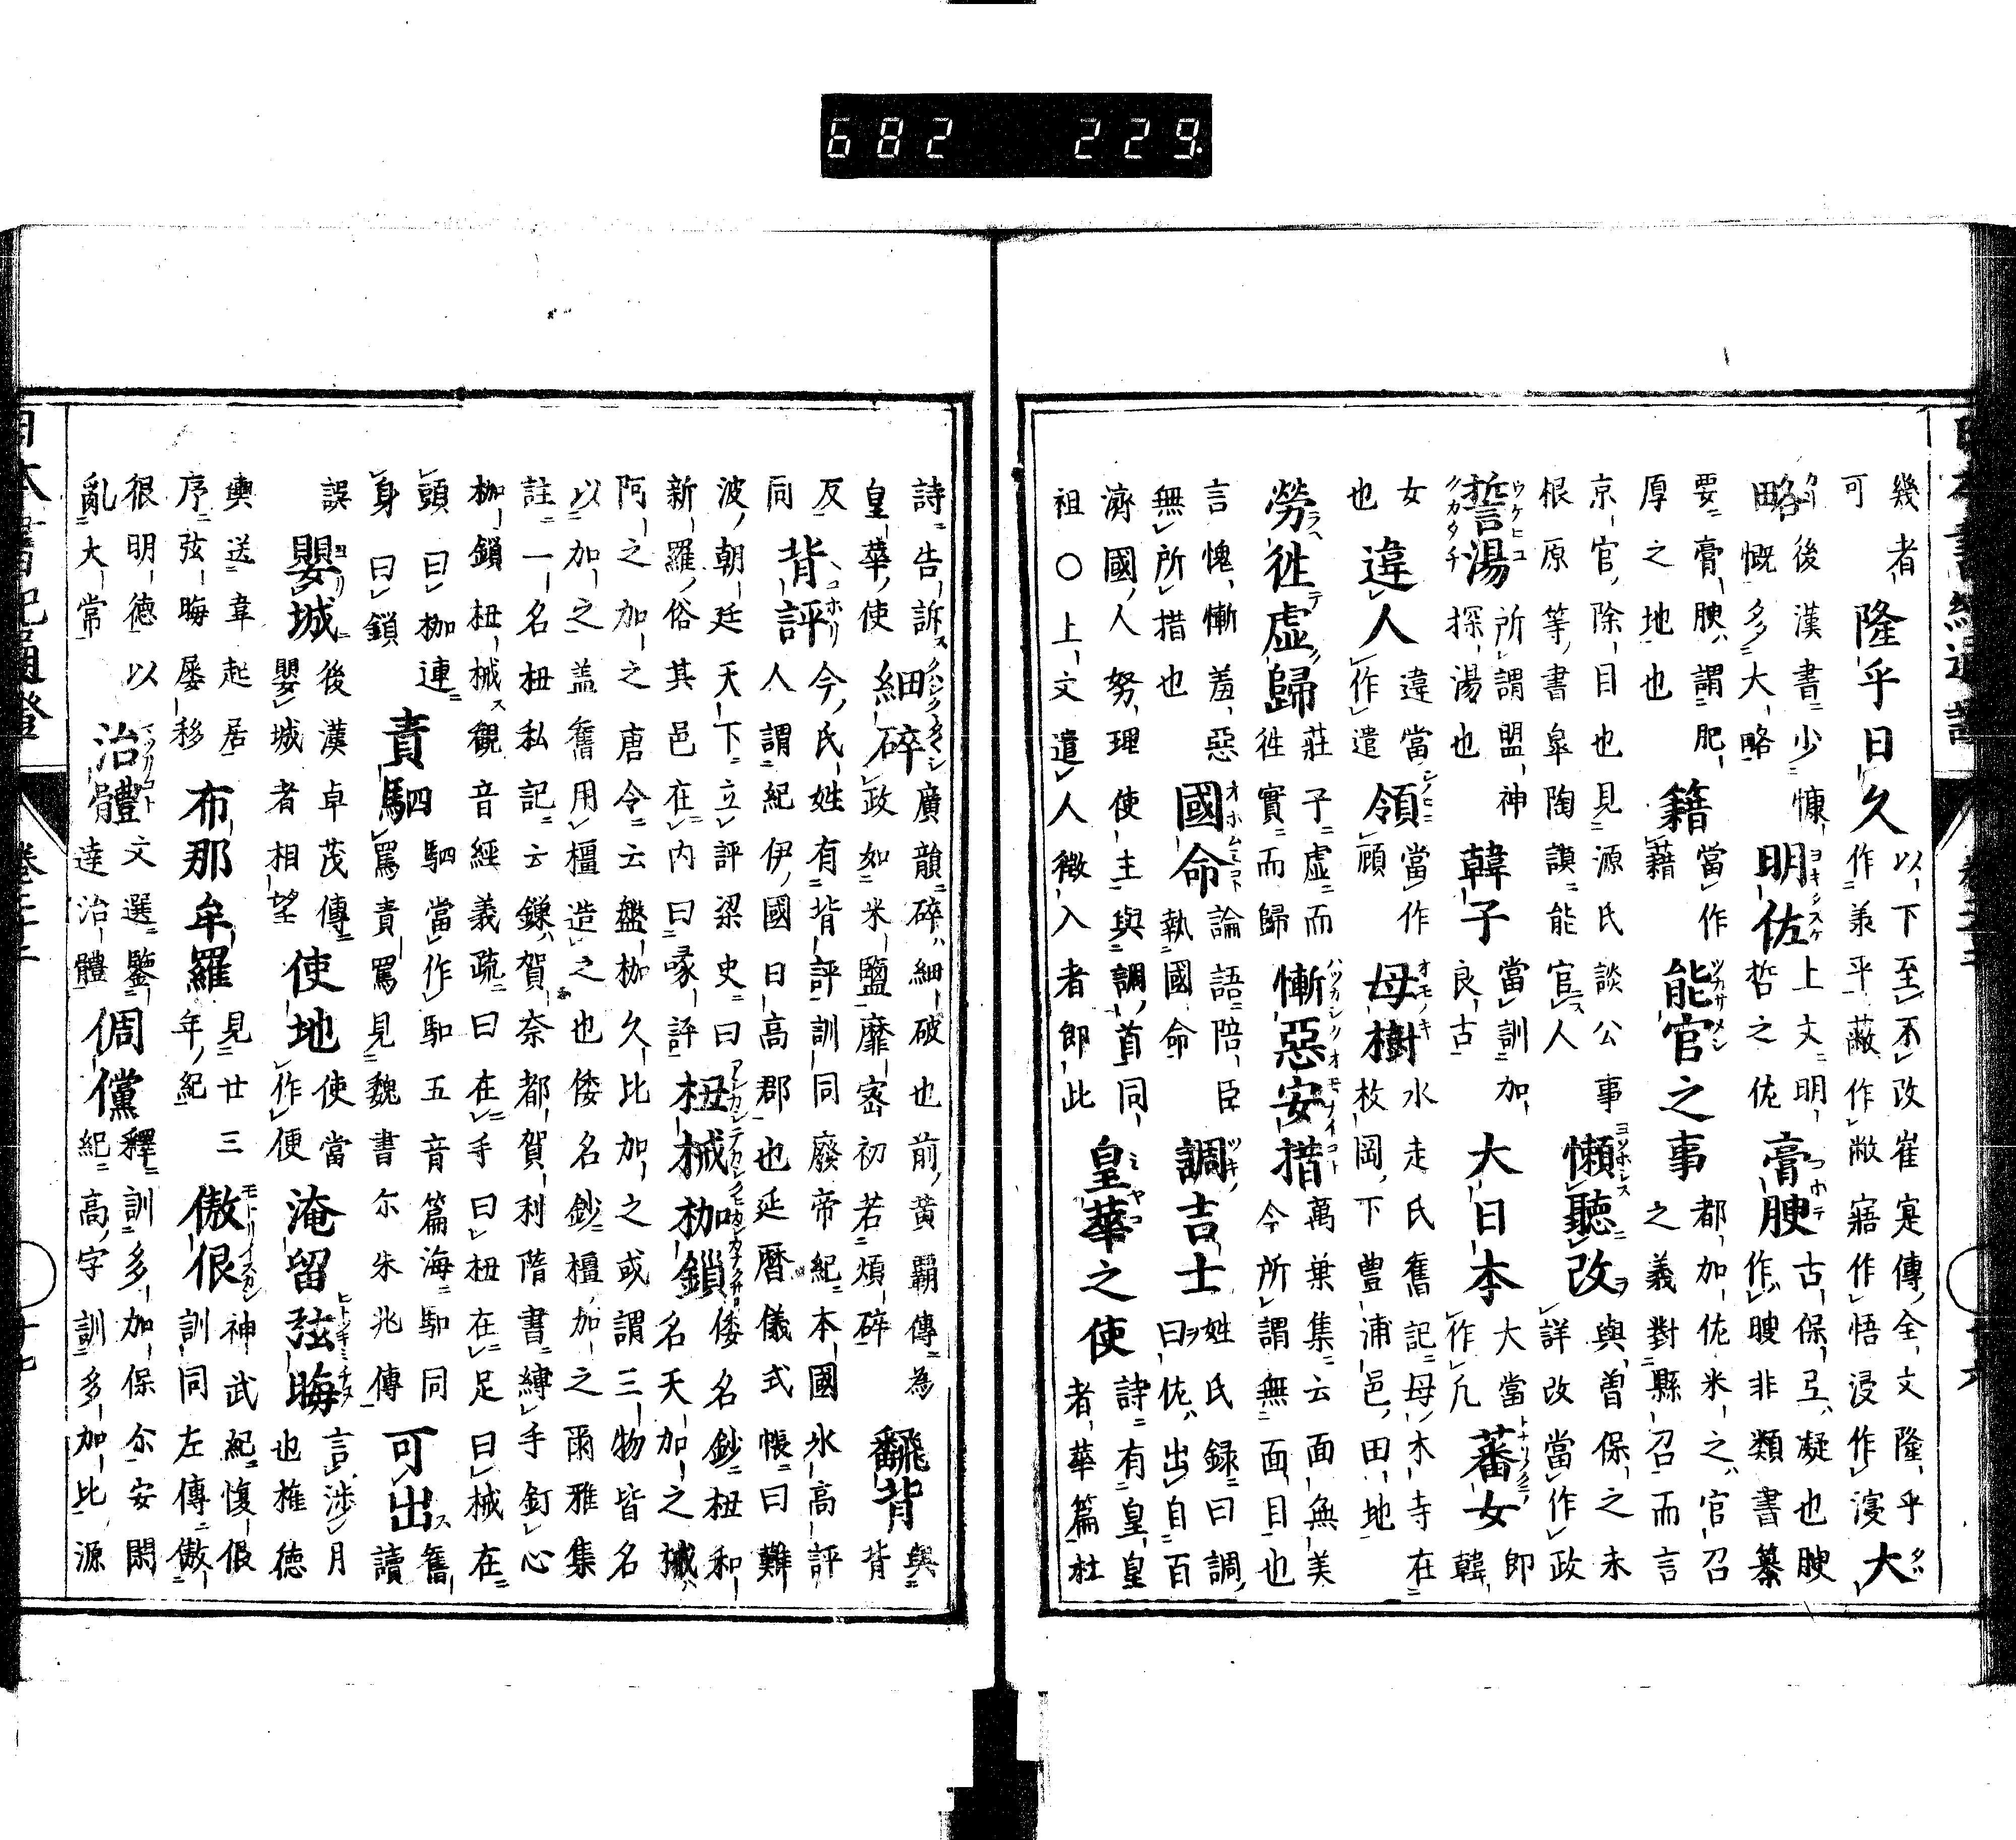 幾者可隆乎日久以下至不改崔寔傳全文隆乎作羕平蔽作敝寤作悟浸作寖大
略後漢書少慷慨多大略明佐上文明哲之佐膏腴古保弖凝也腴作腰非類書纂
要膏腴謂肥厚之地也籍當作藉能官之事都加佐米之官召之義對縣召而言
京官除目也見源氏談公事根原等書皐陶謨能官人懶聽改與曽保之未詳改當作政
誓湯所謂盟神探湯也韓子當訓加良古大日本大當作凡蕃女即韓
女也違人違當作遣領當作顧母樹水走氏舊記母木寺在枚岡下豊浦邑田地
勞徃虚歸莊子虚而徃實而歸慚惡安措萬葉集云面無美今所謂無面目也
言愧慚羞惡無所措也國命論語陪臣執國命調吉士姓氏録曰調曰佐出自百
濟國人努理使主與調首同祖○上文遣人徴入者即此皇華之使詩有皇皇者華篇杜
詩告訴皇華使細碎廣韻碎細破也前黄覇傳為政如米鹽靡密初若煩碎飜背與背
反同背評今氏姓有背評訓同廢帝紀本國氷高評人謂紀伊國日高郡也延暦儀式帳曰難
波朝廷天下立評梁史曰新羅俗其邑在内曰㖨評杻械枷鎖倭名鈔杻和名天加之械
阿之加之唐令云盤枷久比加之或謂三物皆名以加之盖舊用橿造之也倭名鈔橿加之爾雅集
註一名杻私記云鎌賀奈都賀利隋書縛手釘心枷鎖杻械觀音經義疏曰在手曰杻在足曰械在
頭曰枷連身曰鎖責駟罵駟當作馹五音篇海馹同責罵見魏書尓朱兆傳可出舊讀
誤嬰城後漢卓茂傳嬰城者相望使地使當作便淹留弦晦言渉月也権徳
輿送韋起居序弦晦屡移布那牟羅見廿三年紀傲佷神武紀愎佷訓同左傳傲
很明徳以亂大常治體文選鑒達治體倜儻釋訓多加保尓安閇紀高字訓多加比源